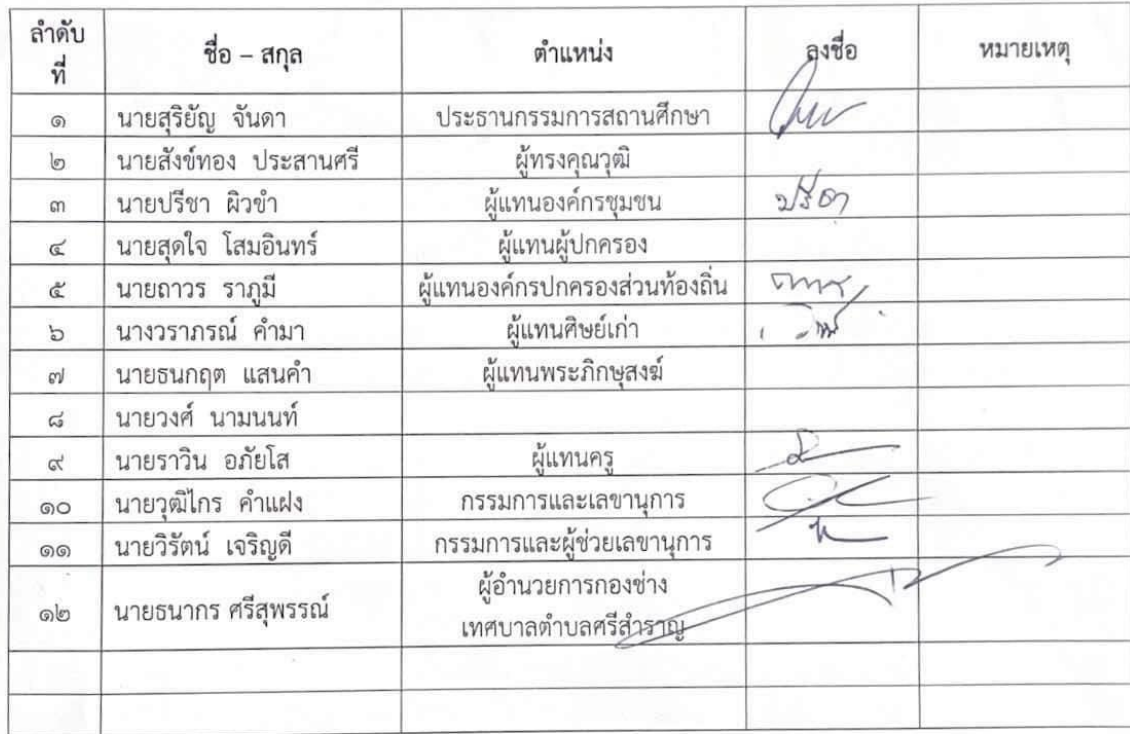 ลำดับที่ ชื่อ – สกุล ตำแหน่ง ลงชื่อ หมายเหตุ
๑ นายสุริยัญ จันดา ประธานกรรมการสถานศึกษา
๒ นายสังข์ทอง ประสานศรี ผู้ทรงคุณวุฒิ
๓ นายปรีชา ผิวขำ ผู้แทนองค์กรชุมชน ปรีชา
๔ นายสุดใจ โสมอินทร์ ผู้แทนผู้ปกครอง
๕ นายถาวร ราภูมี ผู้แทนองค์กรปกครองส่วนท้องถิ่น
๖ นางวราภรณ์ คำมา ผู้แทนศิษย์เก่า
๗ นายธนกฤต แสนคำ ผู้แทนพระภิกษุสงฆ์
๘ นายวงศ์ นามนนท์
๙ นายราวิน อภัยโส ผู้แทนครู
๑๐ นายวุฒิไกร คำแฝง กรรมการและเลขานุการ
๑๑ นายวิรัตน์ เจริญดี กรรมการและผู้ช่วยเลขานุการ
๑๒ นายธนากร ศรีสุพรรณ์ ผู้อำนวยการกองช่าง
เทศบาลตำบลศรีสำราญ